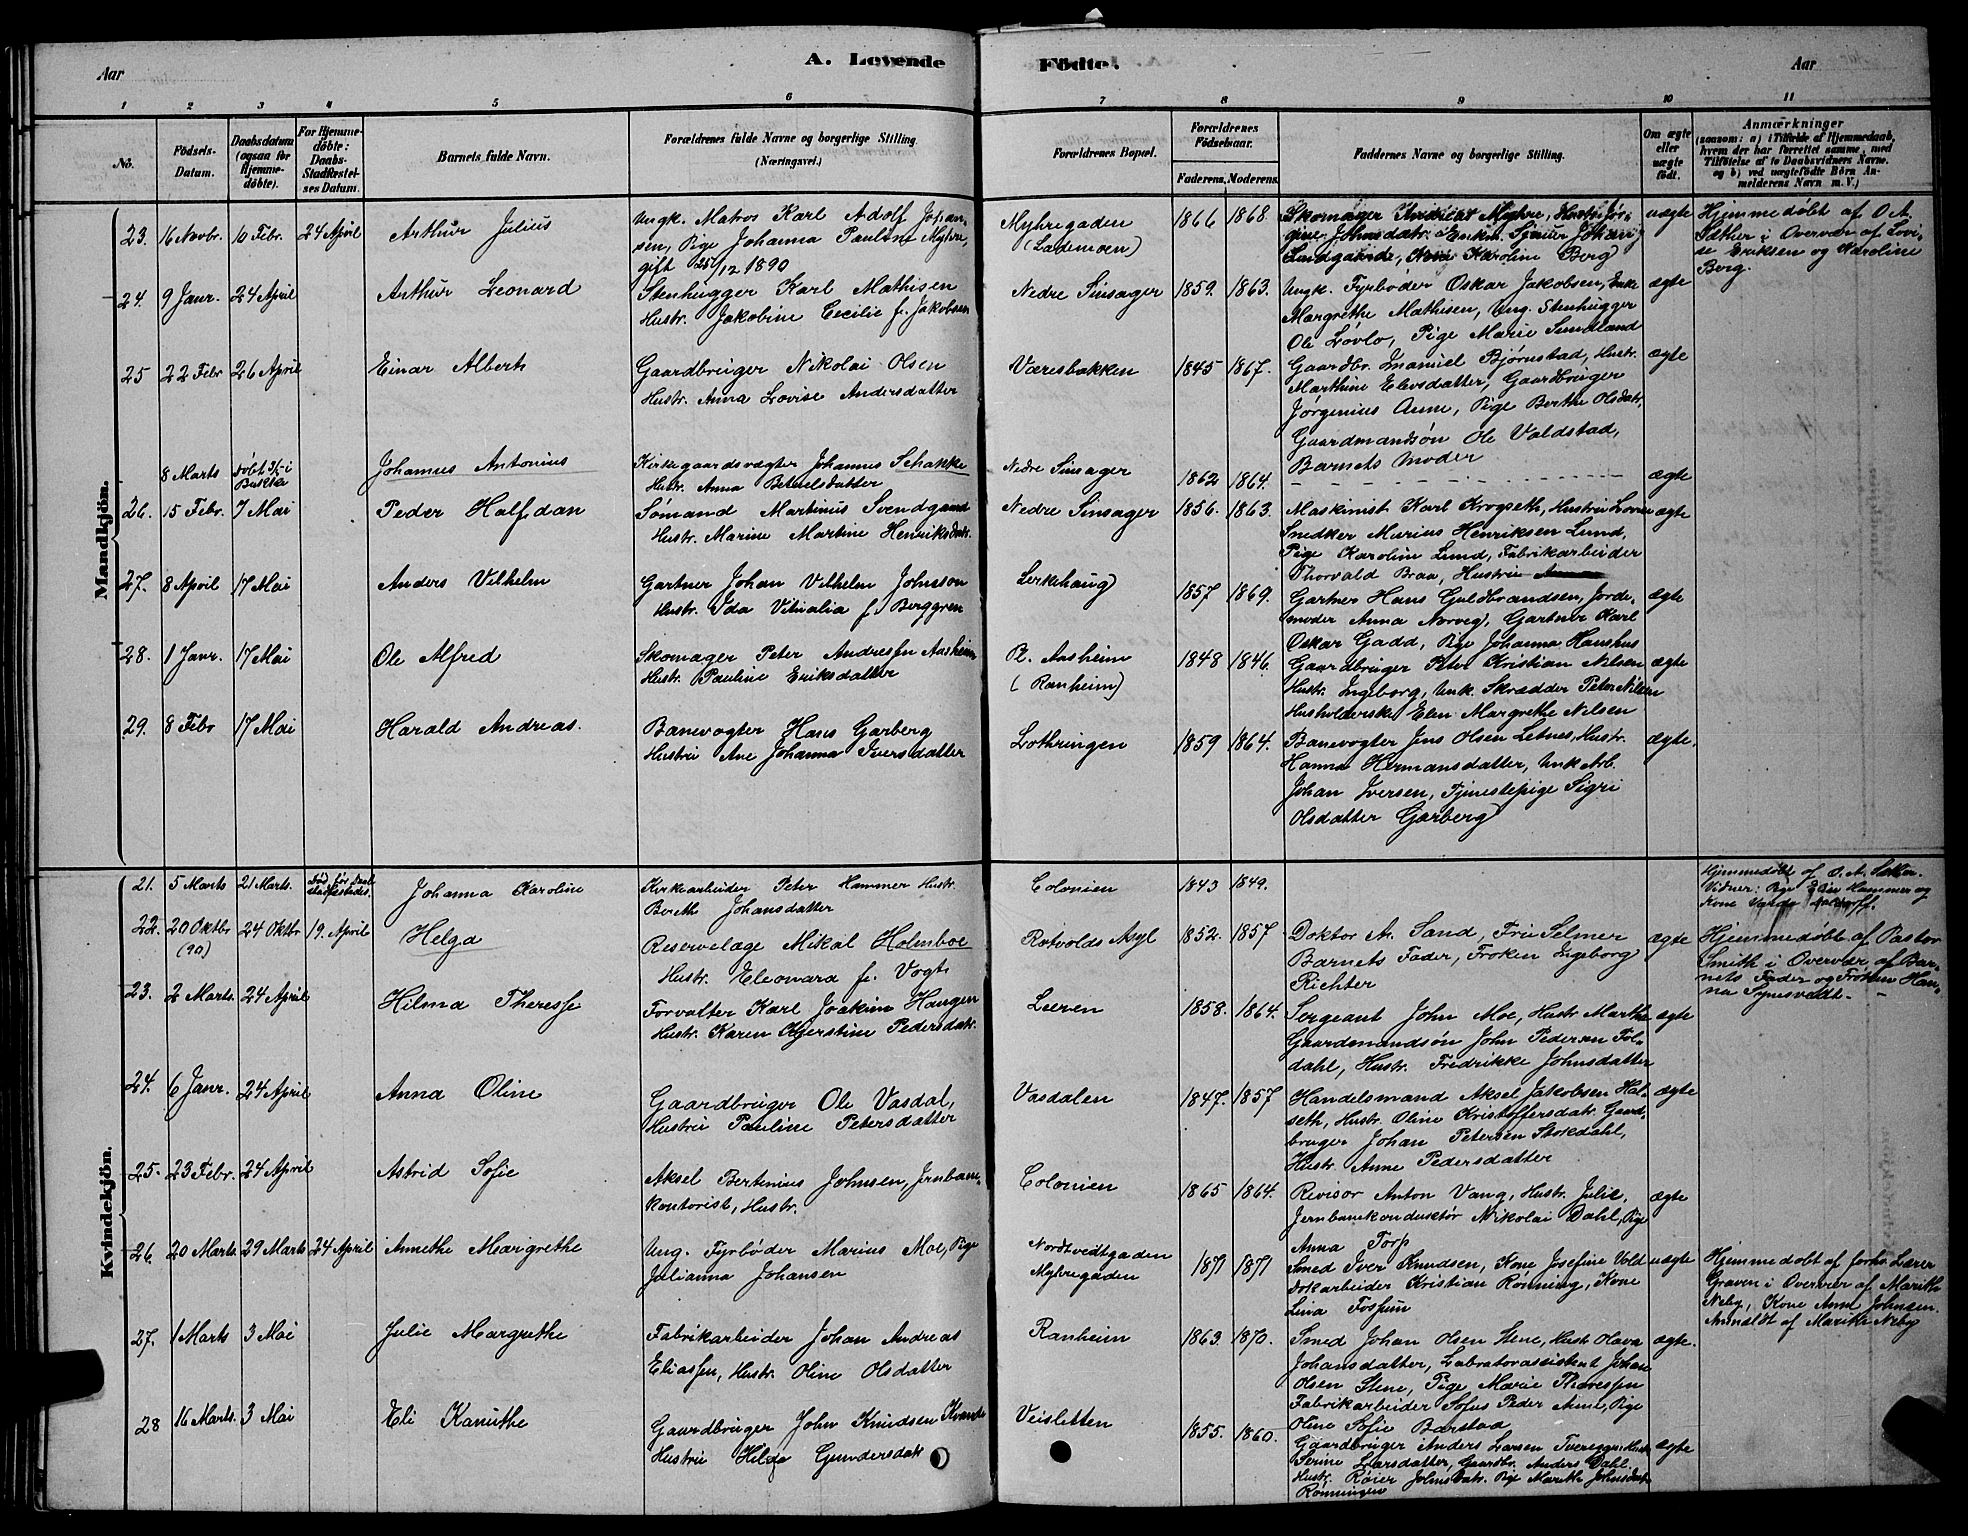 Aar
A. Levende
Fødte.
Aar
1 2 3 4 5 6 7 8 9 10 11
No.
Fødsels-
Datum.
Daabsdatum
(ogsaa for
Hjemme-
døbte).
For Hjemme-
døbte:
Daabs-
Stadfæstel-
ses Datum.
Barnets fulde Navn.
Forældrenes fulde Navne og borgerlige Stilling
(Næringsvei.)
Forældrenes Bopæl.
Forældrenes
Fødselsaar.
Faderens. Moderens.
Faddernes Navne og borgerlige Stilling.
Om ægte
eller
uægte
født.
Anmærkninger
(saasom: a) i Tilfælde af Hjemmedaab,
hvem der har forrettet samme, med
Tilføielse af to Daabsvidners Navne.
og b) ved uægtefødte Børn An-
melderens Navn m. V.)
Mandkjøn.
23. 16 Novbr. 10 Febr. 24 April
Arthur Julius
Ungk. Matros Karl Adolf Johan-
sen, Pige Johanna Pauline Myhre,
gift 25/12 1890
Myhregaden
(Lademoen)
1866 1868.
Skomager Myhre, Hustr. Jør-
gine Johnsdatr. Enkem. Johan
Lindgaarde, Karoline Berg
uægte
Hjemmedøbt af O. A.
Sæther i Overvær af Lovi-
se Eriksen og Karoline
Berg.
24. 9 Janr. 24 April
Arthur Leonard
Stenhugger Karl Mathisen
Hustr. Jakobine Cecilie f. Jakobsen
Nedre Sinsager
1859. 1863.
Ungk. Fyrbøder Oskar Jakobsen, Enke
Margrethe Mathisen, Ung. Stenhugger
Ole Løvlo, Pige Marie Sundland
ægte
25 22 Febr 26 April
Einar Albert
Gaardbruger Nikolai Olsen
Hustr. Anna Lovise Andersdatter
Væresbakken
1845 1867.
Gaardbr. Imanuel Bjørnstad, Hustr.
Marthine Elevsdatter, Gaardbruger
Jørgenius Aune, Pige Berthe Olsdatr,
Gaardmandsøn Ole Valdstad,
Barnets Moder
ægte
8 Marts døbt i
Johannes Antonius
Kirkegaardsvægter Johannes Schanke
Hustr. Anna Betuelsdatter
Nedre Sinsager
1862 1864.
ægte
26. 15 Febr. 7 Mai
Peder Halfdan
Sømand Martinus Svendgaard
Hustr. Marine Martine Henriksdatr.
Nedre Sinsager
1856. 1863.
Maskinist Karl Krogseth, Hustru Lovise
Snedker Marius Henriksen Lund,
Pige Karoline Lund, Fabrikarbeider
Thorvald Braa, Hustru
ægte
27. 8 April 17 Mai
Anders Vilhelm
Gartner Johan Vilhelm Johnson
Hustr. Ida Vitalia f. Berggren
Lerkehaug
1857 1869.
Gartner Hans Guldbrandsen, Jorde-
moder Anna Norveg, Gartner Karl
Oskar Gadd, Pige Johanna Hanshus
ægte
28. 1 Janr. 17 Mai
Ole Alfred
Skomager Peter Andresen Aasheim
Hustr. Pauline Eriksdatter
Pl. Aasheim
(Ranheim)
1848 1846.
Gaardbruger Peter Kristian Nilsen
Hustr. Ingeborg, Unk. Skrædder Peter Nilsen
Husholderske Elen Margrethe Nilsen
ægte
29. 8 Febr 17 Mai
Harald Andreas.
Banevogter Hans Garberg
Hustru Ane Johanna Iversdatter
Lothringen
1859 1864.
Banevogter Jens Olsen Letnes, Hustr.
Hanna Hermansdatter, Unk Arb.
Johan Iversen, Tjenestepige Sigri
Olsdatter Garberg
ægte.
Kvindekjøn.
21. 5 Marts 21 Marts. Død før Daab
stadfæstedes.
Johanna Karoline
Kirkearbeider Peter Hammer Hustr.
Bereth Johansdatter
Colonien
1843 1849.
Hjemmedøbt af O. A. Sæther.
Vidner: Pige Hammer og
Kone
22. 20 Oktbr 24 Oktbr 19. April
(90)
Helga
Reservelæge Mikal Holmboe
Hustr. Eleonara f. Vogt
Rotvolds Asyl
1852. 1857
Doktor A. Sand, Fru Selmer
Barnets Fader, Frøken Ingeborg
Richter
ægte
Hjemmedøbt af Pastor
Smith i Overvær af Bar-
nets Fader og Frøken Han-
na Synesvedt.
23. 2 Marts. 24 April
Hilma Therese
Forvalter Karl Joakim Haugen
Hustr. Karen Kjerstine Pedersdatr.
Leeren
1858. 1864.
Sergeant John Moe, Hustr Marthe
Gaardmandsøn John Pedersen Fol-
dahl, Hustr. Fredrikke Johnsdatter
ægte
24. 6 Janr. 24 April
Anna Oline
Gaardbruger Ole Vasdal,
Hustru Pauline Petersdatter
Vasdalen
1847. 1857
Handelsmand Aksel Jakobsen Hal-
seth, Hustr. Oline Kristoffersdatr. Gaard-
bruger Johan Petersen Stokdahl,
Hustr Anne Pedersdatter
ægte
25. 23 Febr. 24 April
Astrid Sofie
Aksel Bertinius Johnsen, Jernbane-
kontorist, Hustr.
Colonien
1865 1864.
Revisor Anton Vang, Hustr. Julie,
Jernbanekonduktør Nikolai Dahl, Pige
Anna Torp
ægte
26. 20 Marts. 29 Marts 24 April
Annethe Margrethe
Ung. Fyrbøder Marius Moe, Pige
Julianna Johansen
Nordtvedtgaden
Myhregaden
1871 1871
Smed Iver Knudsen, Kone Josefine Vold
Dokarbeider Kristian Rønning, Kone
Lina Fossum
uægte
Hjemmedøbt af forhv. Lærer
Graven i Overvær af Marith
Neby, Kone Anne Johnsen.
Anmeldt af Marith Neby
27. 1 Marts 3 Mai
Julie Margrethe
Fabrikarbeider Johan Andreas
Eliassen, Hustr. Oline Olsdatter
Ranheim
1863. 1870.
Smed Johan Olsen Stene, Hustr Olava
Johansdatter, Labratorassistent Johan
Olsen Stene, Pige Marie Thoresen
Fabrikarbeider Sofus Peder Aune, Pige
Oline Sofie Barstad
ægte.
28 16 Marts. 3 Mai
Eli Kanuthe
Gaardbruger John Knudsen Kvande
Hustru Hilda Gundersdatr
Veisletten
1855. 1860.
Gaardbruger Anders Larsen Tvereggen Hustr
Serine Larsdatter, Gaardbr. Anders Dahl.
Hustr. Johnsdatr. Pige Marith Johnsdatr
Rønningen
ægte